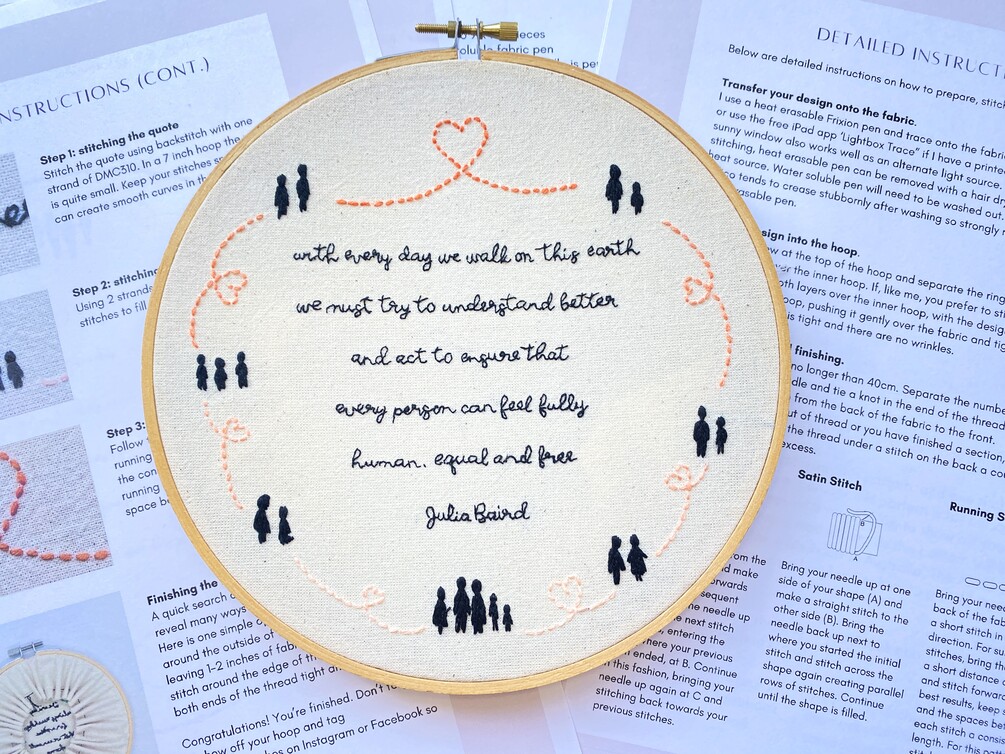 with every day we walk on this earth
we must try to understand better
and act to ensure that
every person can feel fully
human. equal and free
Julia Baird
NSTRUCTIONS (CONT.)
Step 1: stitching the quote
Stitch the quote using backstitch with one
strand of DMC310. In a 7 inch hoop the
is quite small. Keep your stitches
can create smooth curves in
Step 2: stitching
Using 2 strands
stitches to fill
Step 3:
Follow
running
the con
running
space b
Finishing the
A quick search o
reveal many ways
Here is one simple o
around the outside of
leaving 1-2 inches of fab
stitch around the edge of
both ends of the thread tight
Congratulations! You're finished. Don't
how off your hoop and tag
hes on Instagram or Facebook so
eces
oluble fabric pen
DETAILED INSTRUCT
Below are detailed instructions on how to prepare, stitc
Transfer your design onto the fabric.
I use a heat erasable Frixion pen and trace onto the fabri
or use the free iPad app 'Lightbox Trace" if I have a printed
sunny window also works well as an alternate light source.
stitching, heat erasable pen can be removed with a hair dry
heat source. Water soluble pen will need to be washed out.
o tends to crease stubbornly after washing so strongly r
asable pen.
sign into the hoop.
w at the top of the hoop and separate the ring
er the inner hoop. If, like me, you prefer to sti
oth layers over the inner hoop, with the design
oop, pushing it gently over the fabric and tig
is tight and there are no wrinkles.
finishing.
no longer than 40cm. Separate the numb
dle and tie a knot in the end of the thread
from the back of the fabric to the front.
ut of thread or you have finished a section,
the thread under a stitch on the back a cou
excess.
om the
d make
orwards
sequent
he needle up
e next stitch
, entering the
here your previous
ended, at B. Continue
n this fashion, bringing your
needle up again at C and
stitching back towards your
previous stitches.
Satin Stitch
A
Bring your needle up at one
side of your shape (A) and
make a straight stitch to the
other side (B). Bring the
needle back up next to
where you started the initial
stitch and stitch across the
shape again creating parallel
rows of stitches. Continue
until the shape is filled.
Running S
Bring your need
back of the fab
a short stitch in
direction. For su
stitches, bring th
a short distance
and stitch forward
best results, keep s
and the spaces bet
each stitch a consis
length. For this